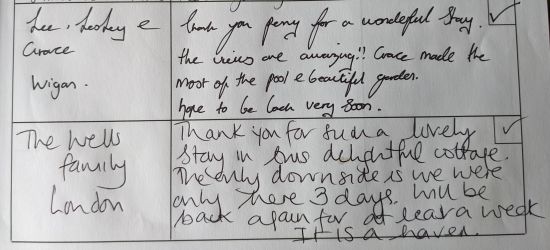 Lee, Lesley &
Grace
Wigan.
Thank you Penny for a wondeful stay.
the views are amazing!! Grace made the
most of the pool & beautiful garden.
hope to be back very soon.
The Wells
family
London
Thank you for such a lovely
stay in this delightful cottage.
The only downside is we were
only here 3 days. Will be
back again for at least a week
It is a haven.